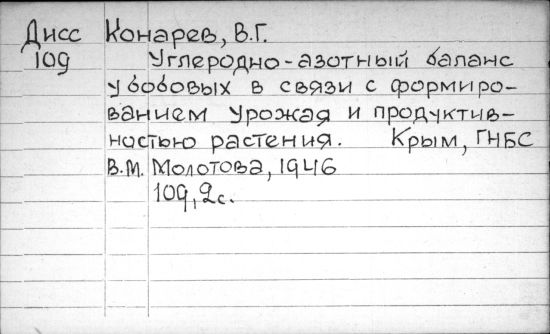 Дисс Конарев, В.Г.
109 Углеродно-азотный баланс
у бобовых в связи с формиро-
ванием урожая и продуктив-
ностью растения. Крым, ГНБС
В.М. Молотова, 1946
109, 2с.